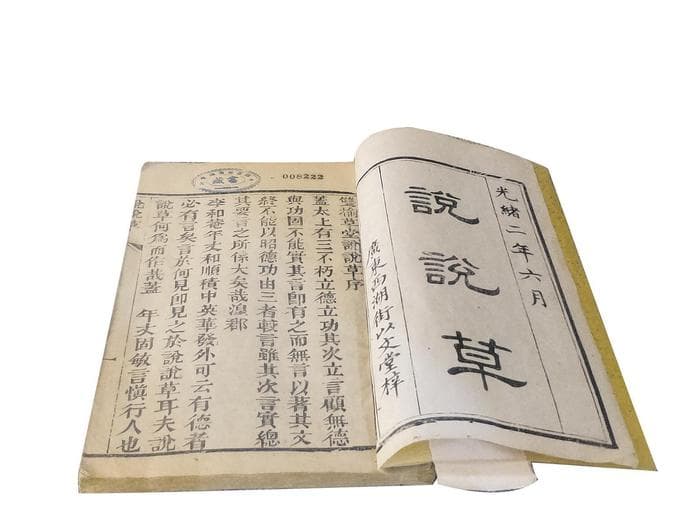 光緒二年六月
說說草
廣東西湖街以文堂梓
008222
草堂說說草序
蓋太上有三不朽立德立功其次立言顧無德
與功固不能實其言即有之而無言以著其文
終不能以昭德功由三者較言雖其次言實總
其要言之所係大矣哉湟郡
李和菴年丈和順積中英華發外可云有德者
必有言矣言於何見即見之於說說草耳夫說
說草何爲而作哉蓋　年丈固敏言愼行人也
說說草